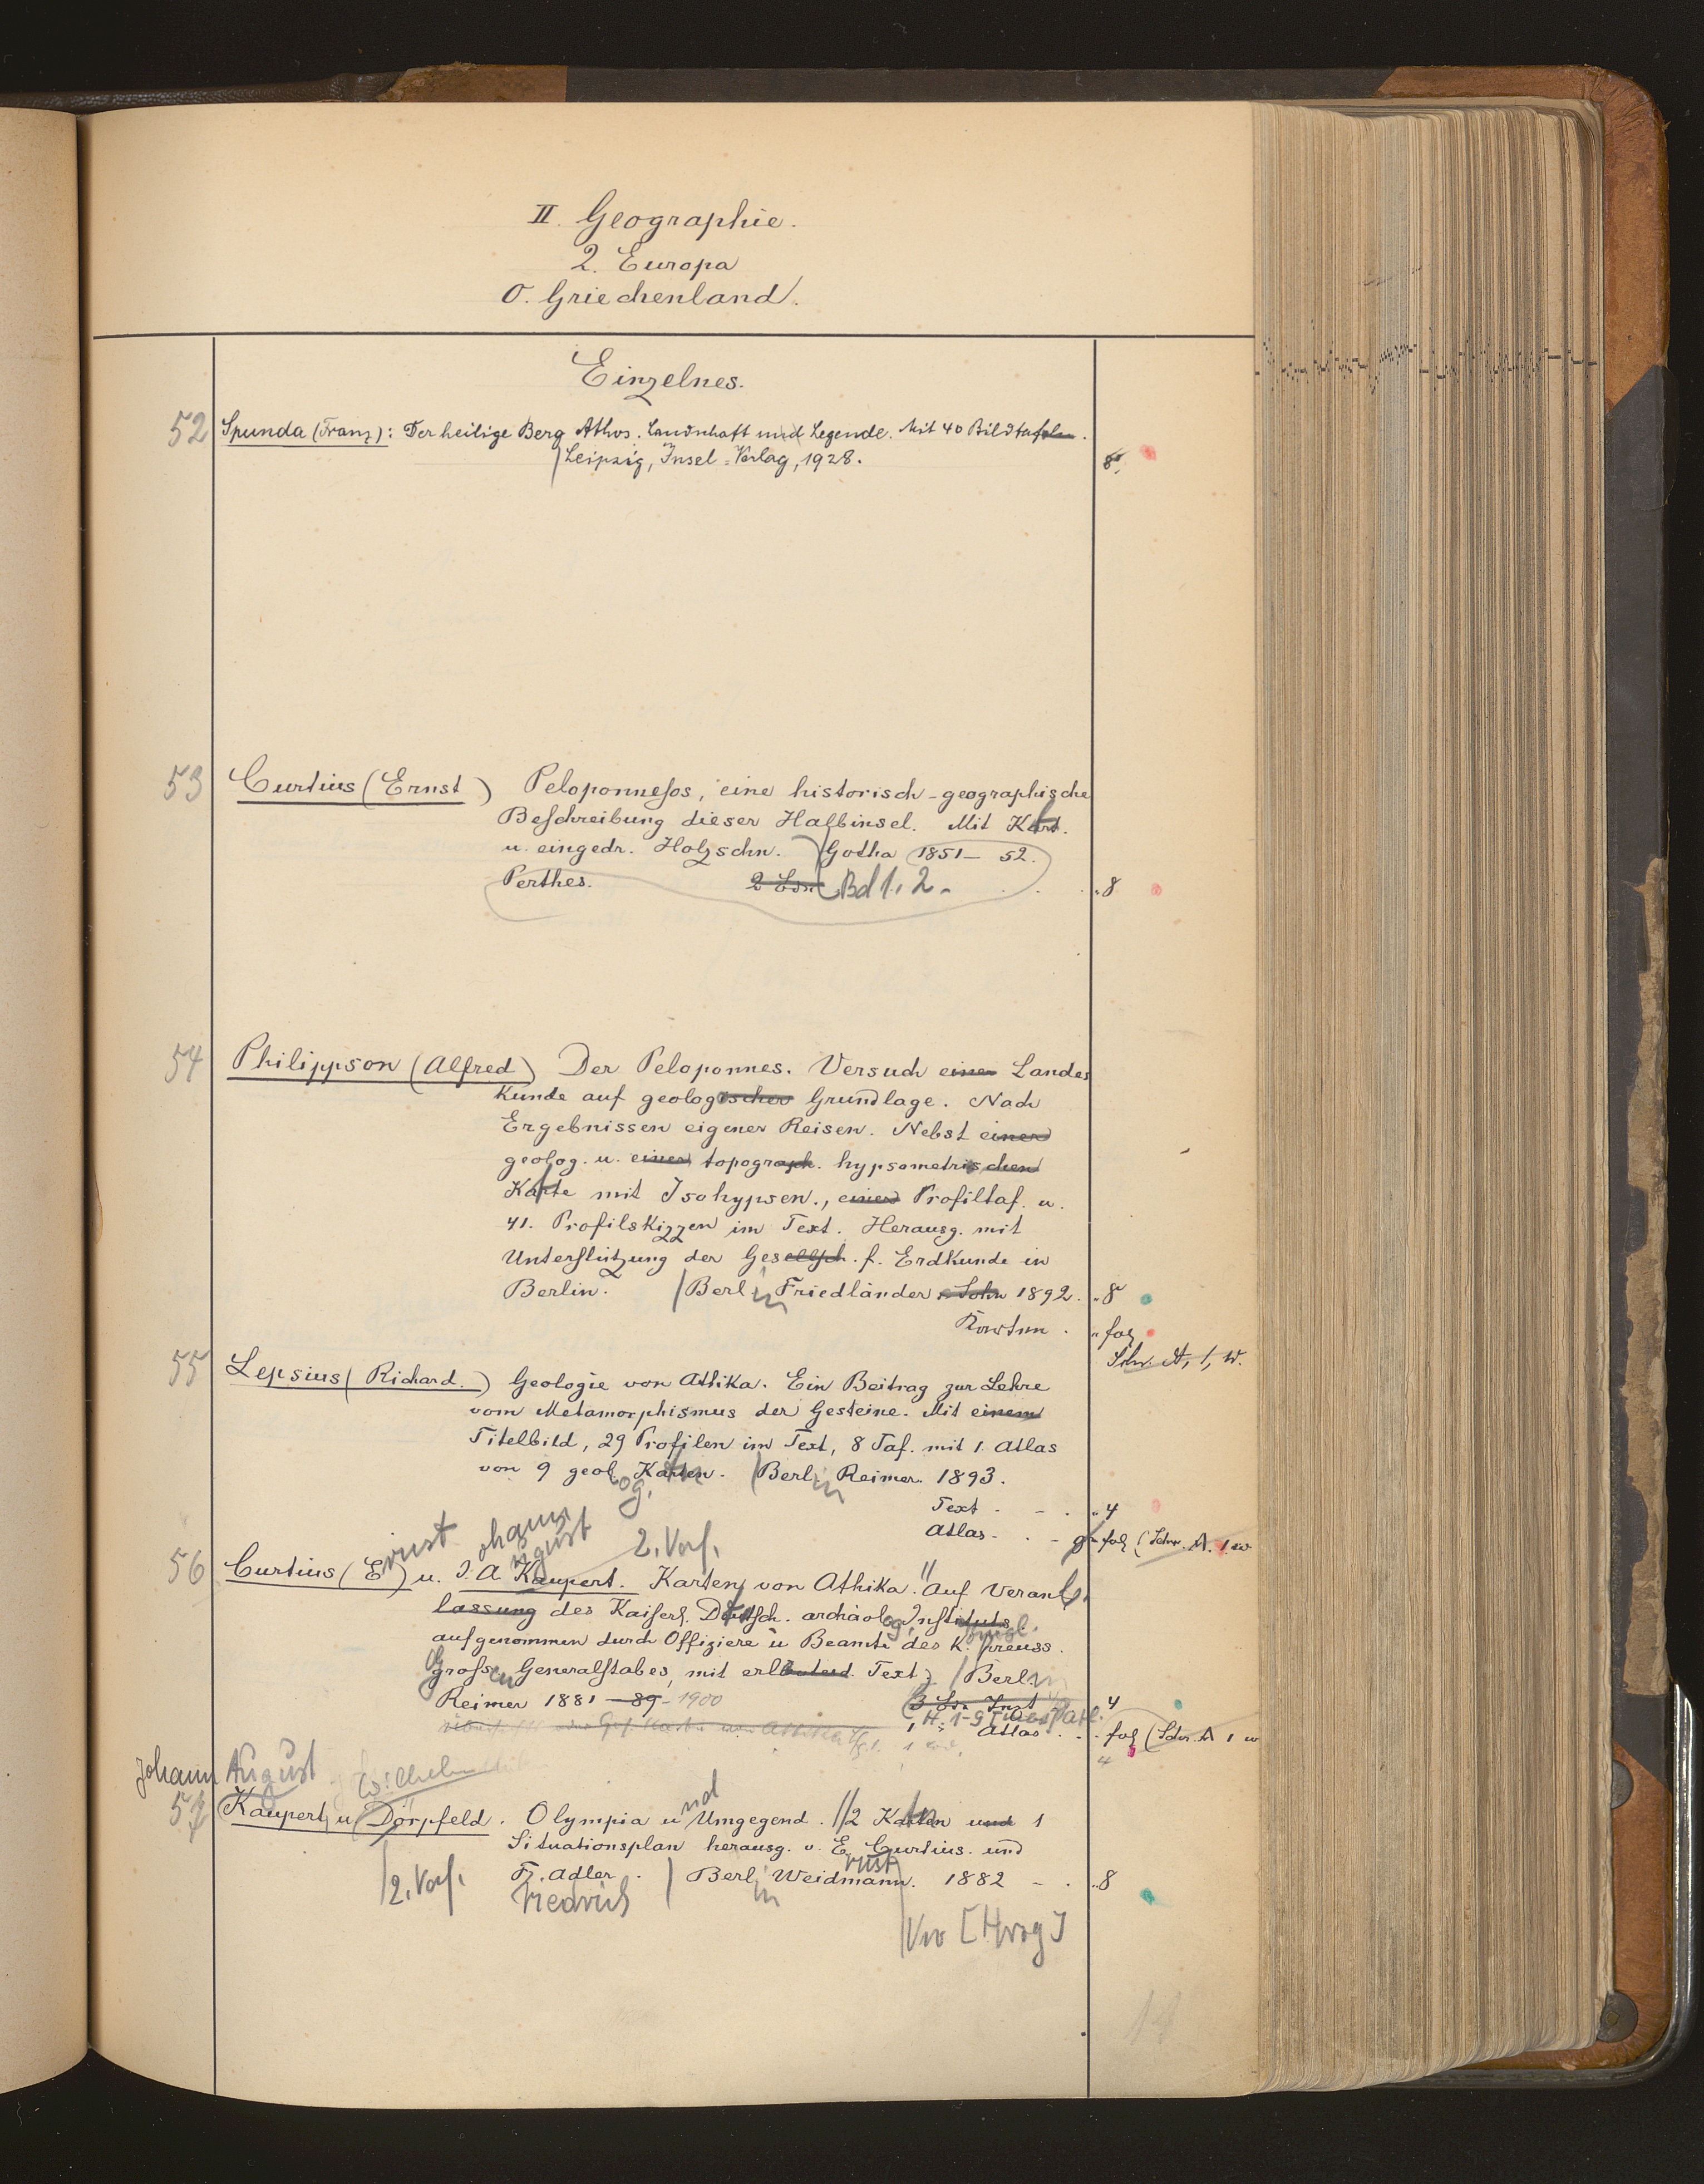 II. Geographie.
2. Europa
O. Griechenland.
Einzelnes.
52 Spunda (Franz): Der heilige Berg Athos. Landschaft und Legende. Mit 40 Bildtafeln.
Leipzig, Insel-Verlag, 1928. 8°.
53 Curtius (Ernst) Peloponnesos, eine historisch-geographische
Beschreibung dieser Halbinsel. Mit Kart.
u. eingedr. Holzschn. Gotha 1851-52.
Perthes. Bd 1. 2. „ 8
54 Philippson (Alfred) Der Peloponnes. Versuch einer Landes
Kunde auf geologischer Grundlage. Nach
Ergebnissen eigener Reisen. Nebst einer
geolog. u. einer topograph. hypsometrischen
Karte mit Isohypsen., einer Profiltaf. u.
41. Profilskizzen im Text. Herausg. mit
Unterstützung der Gesellsch. f. Erdkunde in
Berlin. Berlin Friedländer u. Sohn 1892. „ 8
Karten. „ fol
Schr. A, 1, w.
55 Lepsius (Richard.) Geologie von Attika. Ein Beitrag zur Lehre
vom Metamorphismus der Gesteine. Mit einem
Titelbild, 29 Profilen im Text, 8 Taf. mit 1. Atlas
von 9 geolog. Karten. Berlin Reimer. 1893.
Text . - . „ 4
Atlas - . - gr fol (Schr. A. 1. w
ernst ohann ugust 2. Verf.
56 Curtius (E) u. J. A. Kaupert. Karten von Attika. Auf Veran
lassung des Kaiserl. Deutsch. archäolog. Instituts
aufgenommen durch Offiziere u Beamte des K. preuss.
grossen Generalstabes, mit erläuternd. Text. Berlin
Reimer 1881-89-1900 „ 4
H. 1-9
Atlas . . fol (Schr. A 1 w
4
Johann August Wilhelm
57 Kaupert u Dörpfeld. Olympia und Umgegend. 2 Karten und 1
Situationsplan herausg. v. E. Curtius. und
2. Verf. Fr. Adler. Berlin Weidmann. 1882 - . „ 8
riedrich ernst
Vw [Hrsg]